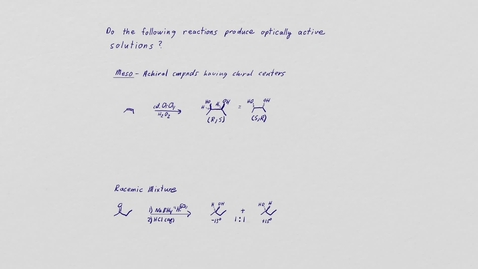 Do the following reactions produce optically active
solutions?
Meso - Achiral cmpnds having chiral centers
H₂O₂
(R,S)
=
(S,R)
Racemic Mixture
1) NaBH₄
2) HCl (aq)
+
1:1